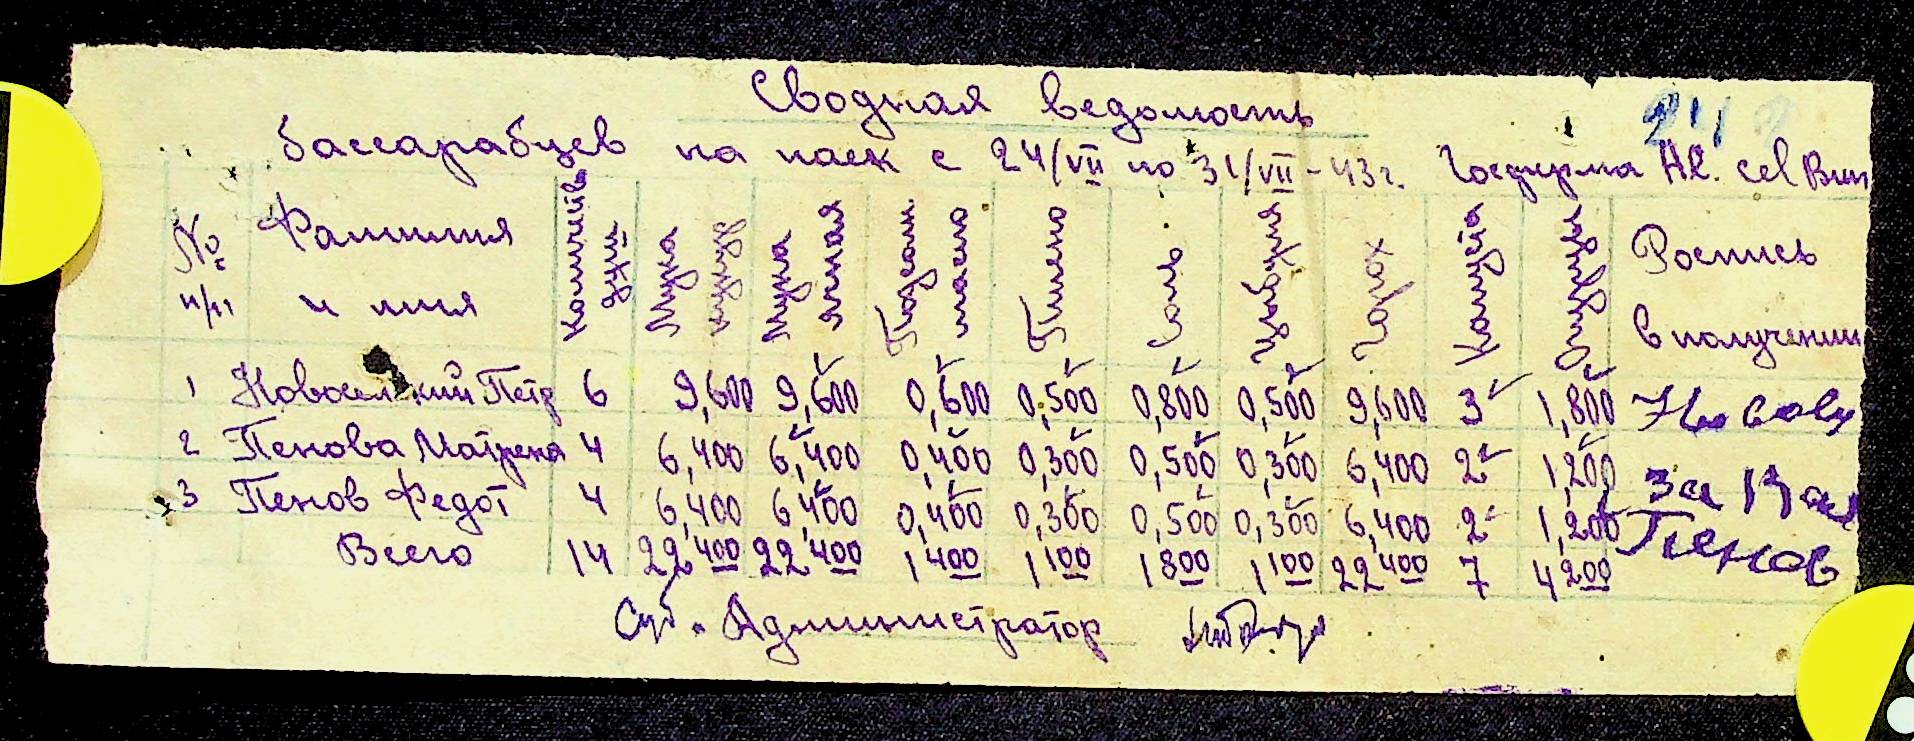 Сводная ведомость
бассарабцев на паек с 24/VII по 31/VII-43 г. Госферма Al. cel Bun
№ п/п Фамилия и имя Количество душ Мука кукур Мука ячная Подсол масло Пшено Соль Горох Капуста Огурцы Роспись в получении
1 Новосельский Петр 6 9,600 9,600 0,600 0,500 0,800 0,500 9,600 3 1,800
2 Пенова Матрена 4 6,400 6,400 0,400 0,300 0,500 0,300 6,400 2 1,200 за
3 Пенов Федот 4 6,400 6,400 0,400 0,300 0,500 0,300 6,400 2 1,200 Пенов
Всего 14 22,400 22,400 1 400 1 100 1 800 1 100 22 400 7 4 200
Суб. Администратор